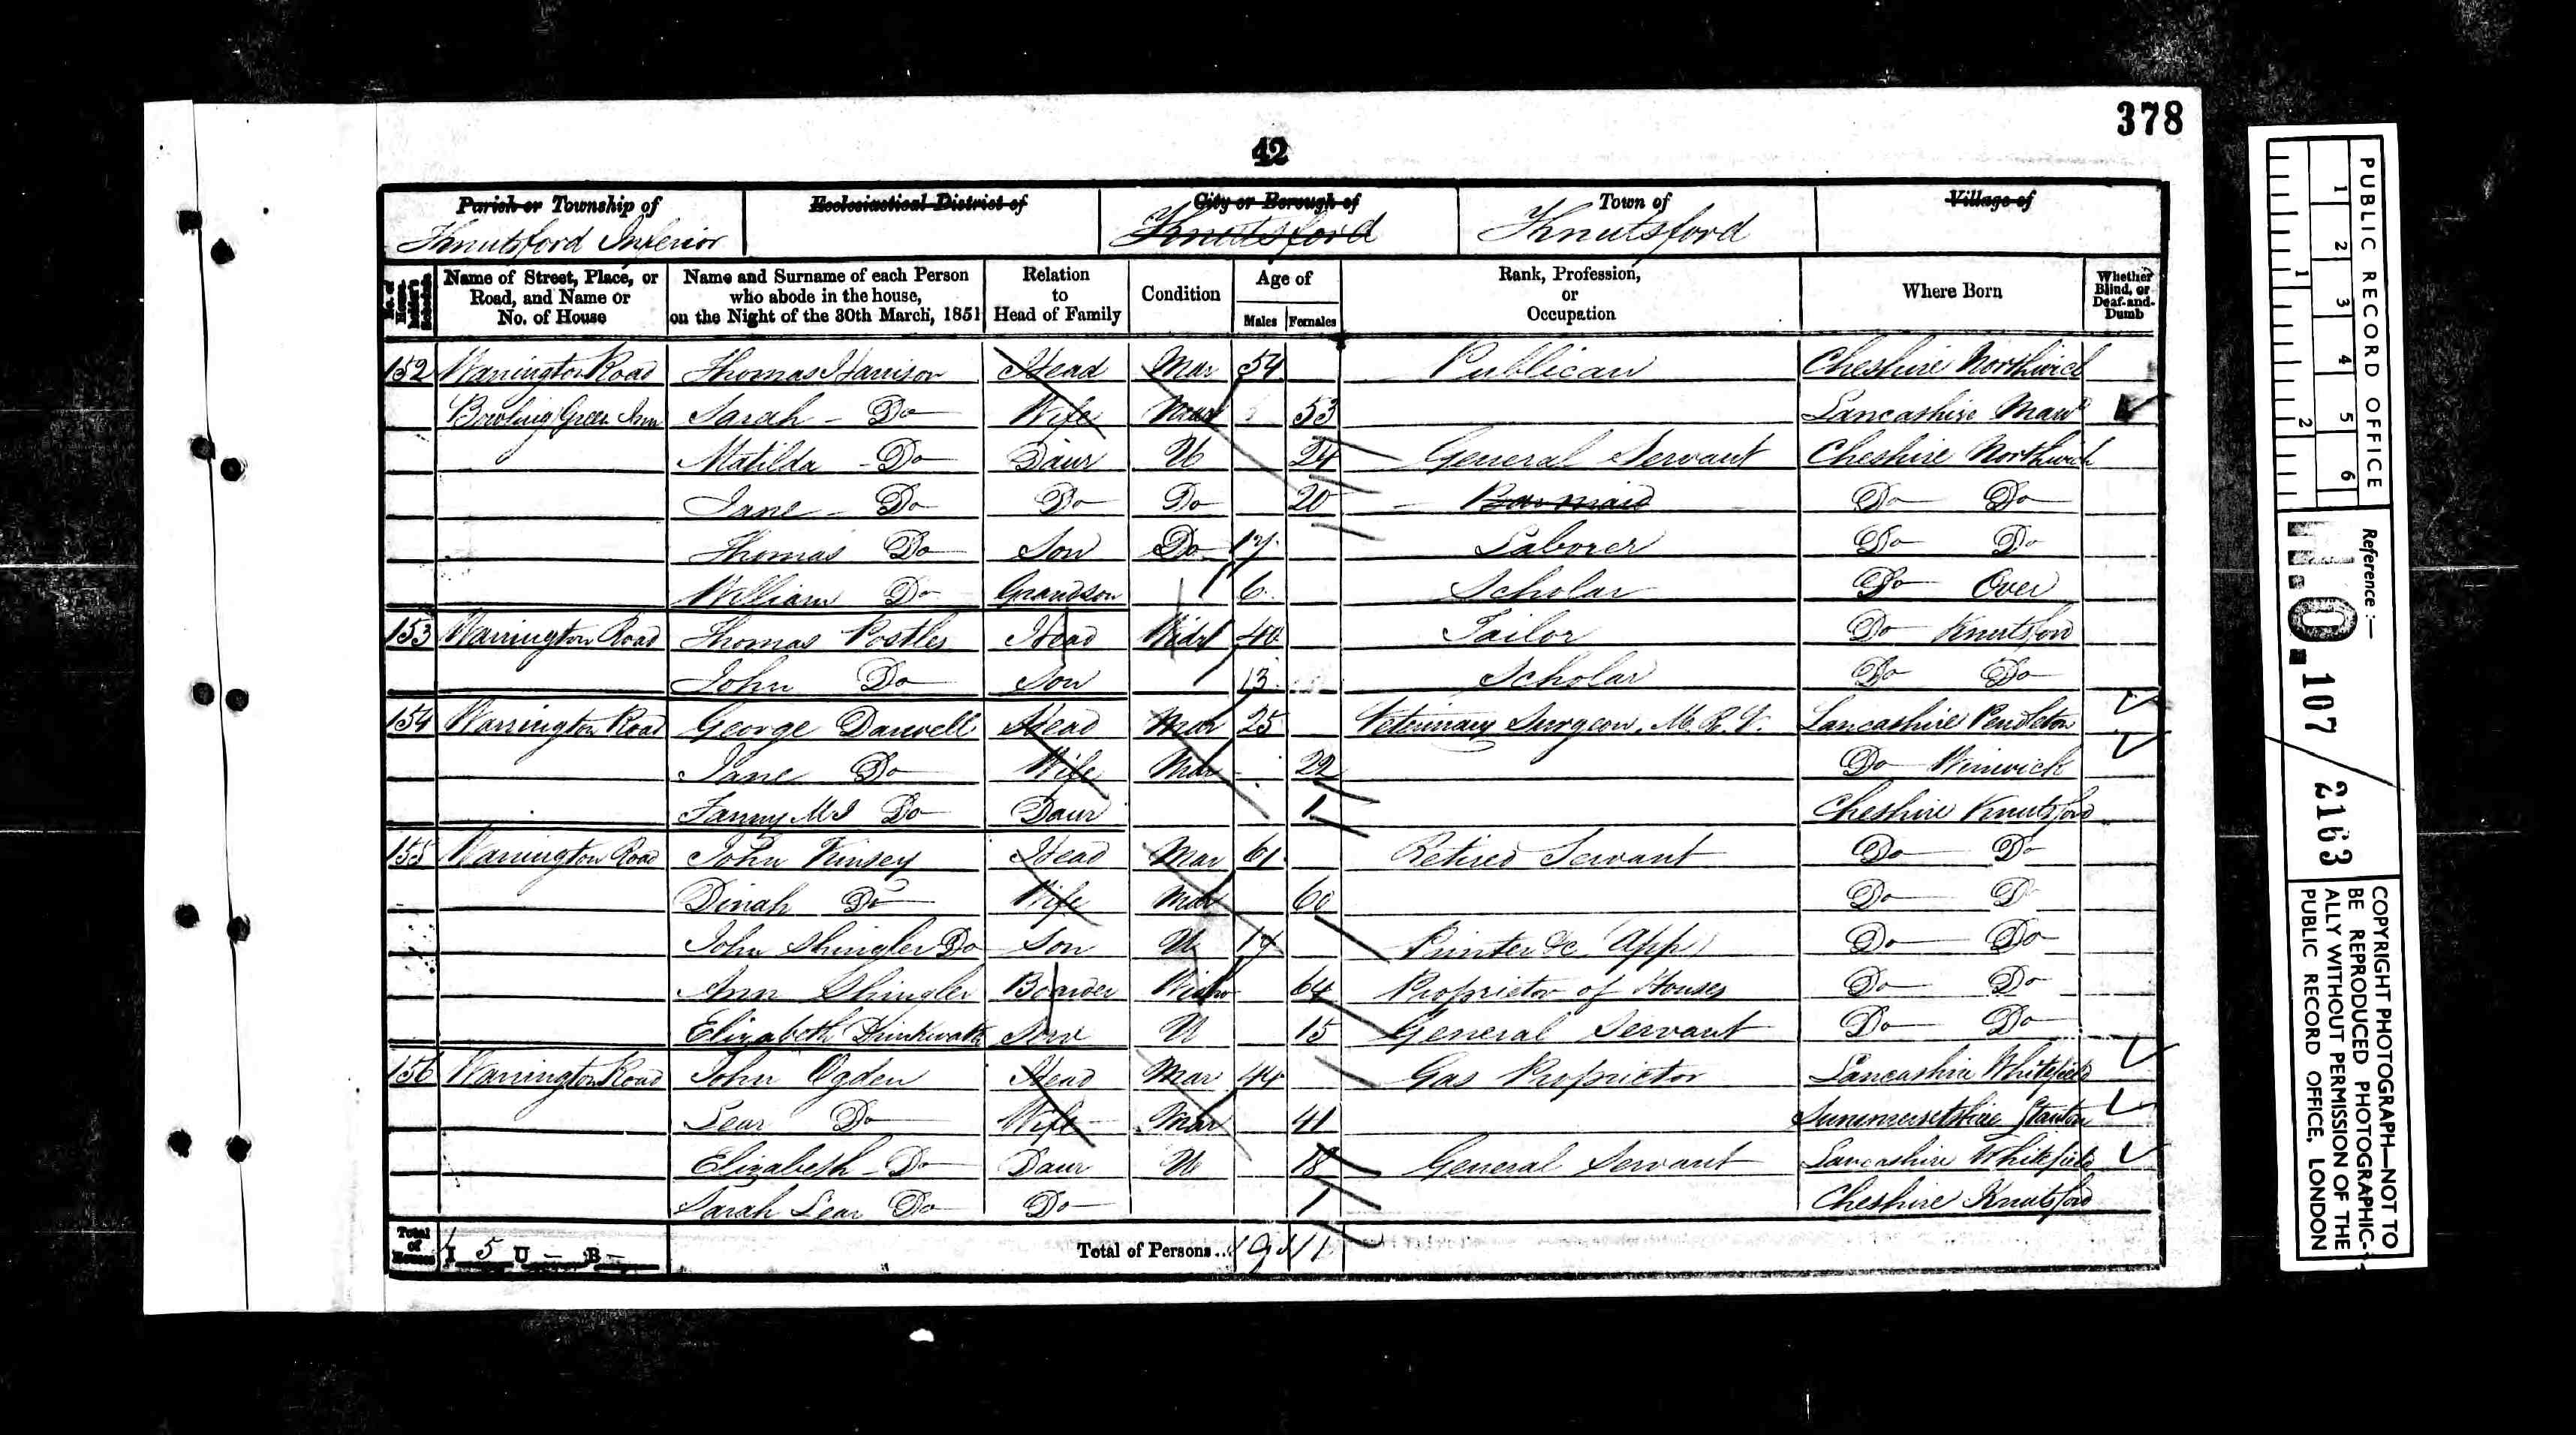 378
42
Parish or Township of Ecclesiastical District of City or Borough of Town of Village of
Knutsford Inferior Knutsford Knutsford
No. of House-holder's Schedule
Name of Street, Place, or Road, and Name or No. of House
Name and Surname of each Person who abode in the house, on the Night of the 30th March, 1851
Relation to Head of Family
Condition
Age of
Males Females
Rank, Profession, or Occupation
Where Born
Whether Blind, or Deaf-and-Dumb
152 Warrington Road Thomas Harrison Head Mar 54 Publican Cheshire Northwich
Bowling Green Inn Sarah - Do Wife Mar 53 Lancashire
Matilda - Do Daur U 24 General Servant Cheshire Northwich
Jane - Do Do Do 20 Barmaid Do Do
Thomas Do Son Do 17 Laborer Do Do
William Do Grandson 6 Scholar Do Over
153 Warrington Road Thomas Postles Head Widr 40 Tailor Do Knutsford
John Do Son 13 Scholar Do Do
154 Warrington Road George Darwell Head Mar 25 Veterinary Surgeon, Lancashire Pendleton
Jane Do Wife Mar 22 Do Winwick
Fanny M J Do Daur 1 Cheshire Knutsford
155 Warrington Road John Kinsey Head Mar 61 Retired Servant Do Do
Dinah Do Wife Mar 60 Do D
John Shingler Do Son U 17 Printer &c (App) Do Do
Ann Shingler Boarder Widow 64 Proprietor of Houses Do Do
Elizabeth Drinkwater Serv U 15 General Servant Do Do
156 Warrington Road John Ogden Head Mar 44 Gas Proprietor Lancashire Whitefield
Lear Do Wife Mar 41 Summersetshire Stanton
Elizabeth - Do Daur U 18 General Servant Lancashire Whitefield
Sarah Lear Do Do 1 Cheshire Knutsford
Total of Houses I 5 U - B - Total of Persons... 9 11
PUBLIC RECORD OFFICE
1 2 3 4 5 6
1 2
Reference :-
H.O. 107 / 2163
COPYRIGHT PHOTOGRAPH—NOT TO
BE REPRODUCED PHOTOGRAPHIC-
ALLY WITHOUT PERMISSION OF THE
PUBLIC RECORD OFFICE, LONDON